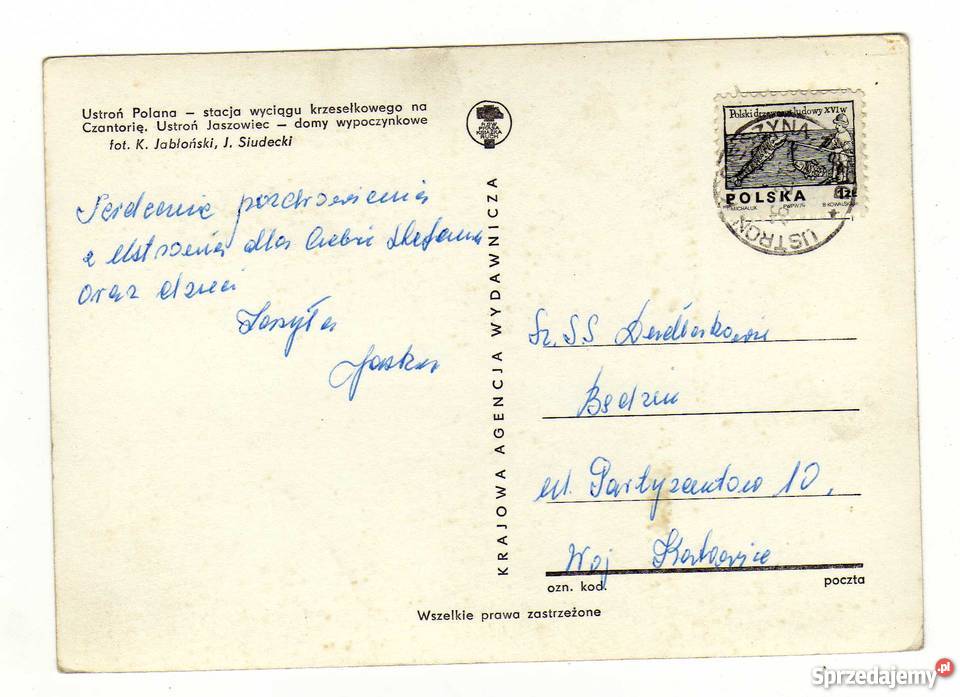 Ustroń Polana – stacja wyciągu krzesełkowego na
Czantorię. Ustroń Jaszowiec – domy wypoczynkowe
fot. K. Jabłoński, J. Siudecki
Serdeczne pozdrowienia
z Ustronia dla Ciebie
oraz dzieci
KRAJOWA AGENCJA WYDAWNICZA
Polski drzeworyt ludowy XVI w
POLSKA
1zł
USTROŃ
Sz. SS
Będzin
ul. Partyzantów 10,
Woj Katowice
ozn. kod.
poczta
Wszelkie prawa zastrzeżone
Sprzedajemy.pl